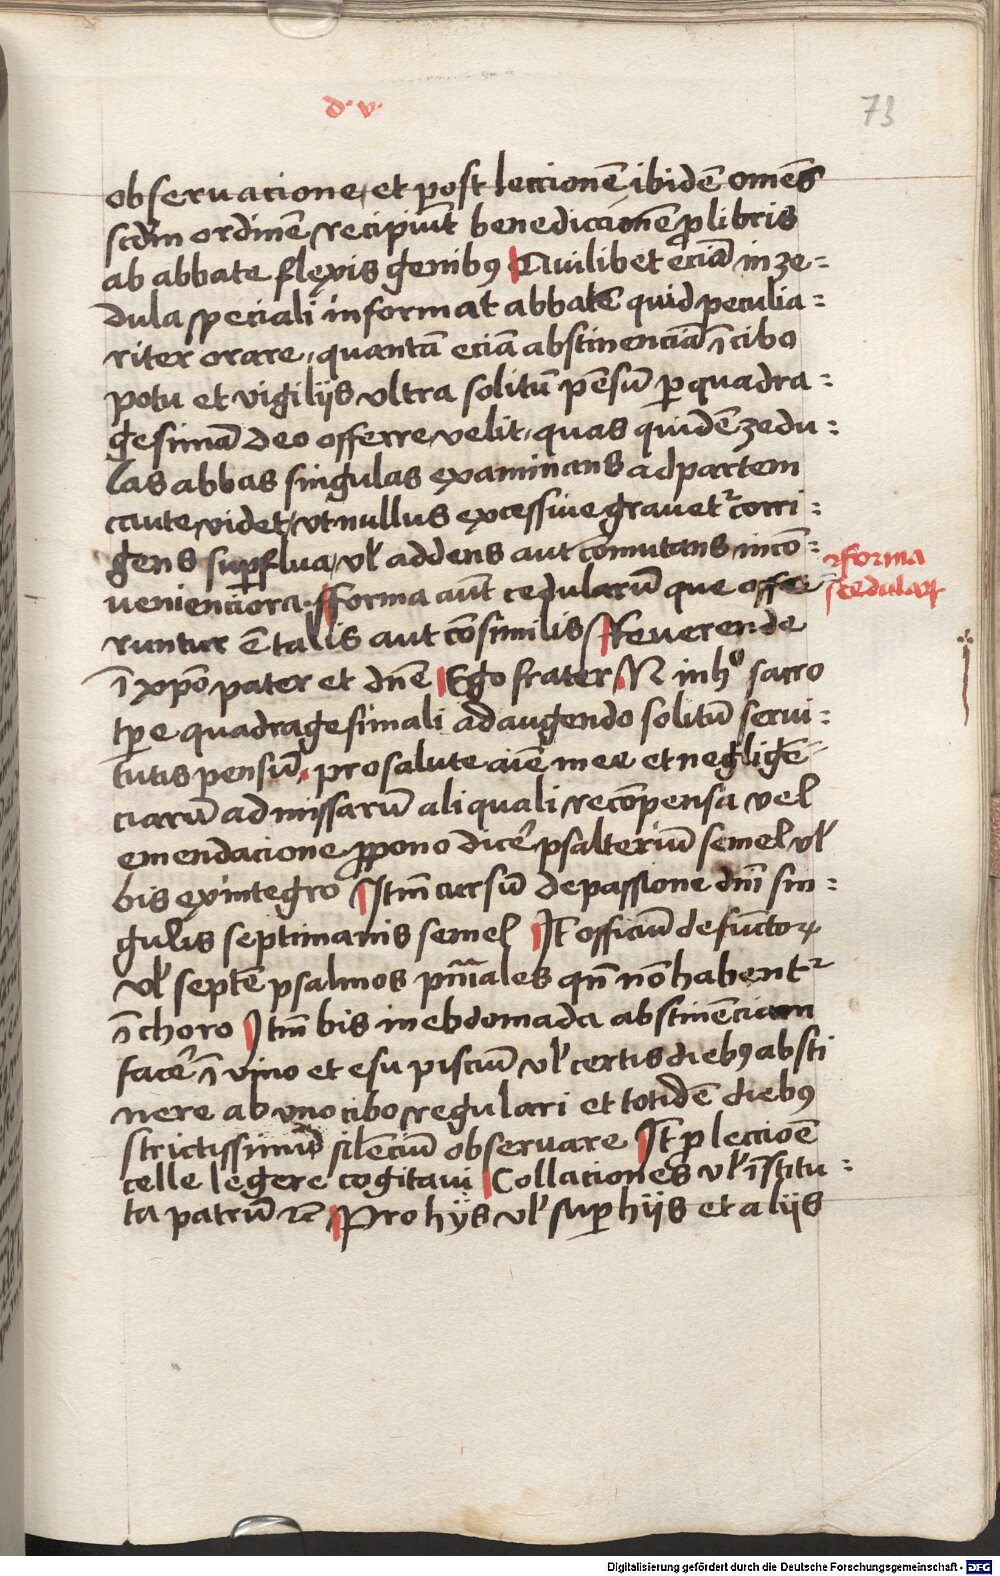 d. v.
73
obseruacione, et post leccionē ibidē om̄es
scd̄m ordinē recipiūt benediccionē ꝓ libris
ab abbate flexis genibꝰ Quilibet eciā in ze=
dula speciali informat abbatē quid peculia=
riter orare, quantā eciā abstinenciā ī cibo
potu et vigiliis vltra solitū pēsū ꝑ quadra=
gesimā deo offerre velit, quas quidē zedu=
las abbas singulas examinans ad partem
caute videt, vt nullus excessiue grauetᷣ corri=
gens suꝑflua, vl̕ addens aut cōmutans incō=
uenienciora. fforma aūt cedularū que offe=
runtur ē talis aut cōsimilis Reuerende
ī xp̄o pater et dn̄e Ego frater N in hͦ sacro
tꝑe quadragesimali ad augendo solitū serui=
tutis pensū, pro salute aīe mee et negligē=
ciarū admissarū aliquali recōpensa vel
emendacione ꝓpono dicer̕ psalteriū semel vl̕
bis ex integro Itm̄ cursū de passione dn̄i sin=
gulis septimanis semel It̄ officiū defūctoꝝ
vl̕ septē psalmos pn̄iales qn̄ nō habentᷣ
ī choro Itm̄ bis in ebdomada abstinēciam
facer̕ ī vino et esu pisciū vl̕ certis diebꝰ absti
nere ab vno cibo regulari et totidē diebꝰ
strictissimū silēciū obseruare It̄ ꝓ leccioē
celle legere cogitaui Collaciones vl̕ īstitu=
ta patrū ⁊c̄ Pro hijs vl̕ suꝑ hiis et aliis
forma
scedulaꝝ
Digitalisierung gefördert durch die Deutsche Forschungsgemeinschaft - DFG